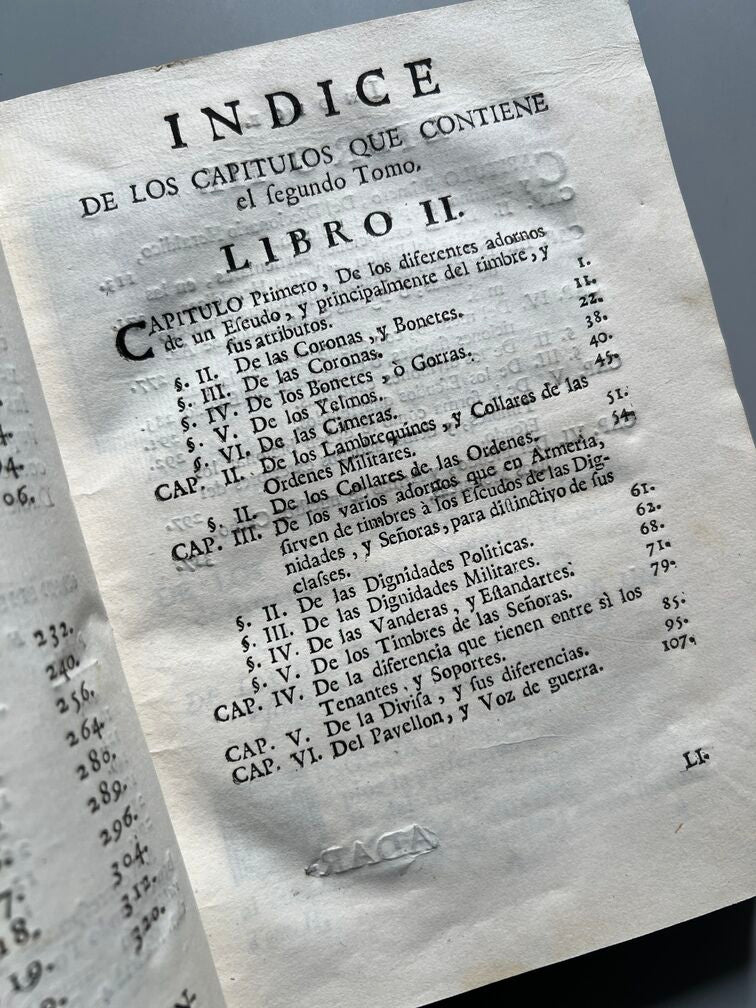 INDICE
DE LOS CAPITULOS QUE CONTIENE
el ſegundo Tomo.
LIBRO II.
CAPITULO Primero, De los diferentes adornos
de un Eſcudo, y principalmente del timbre, y
ſus atributos. 1.
§. II. De las Coronas, y Bonetes. 11.
§. III. De las Coronas. 22.
§. IV. De los Bonetes, ò Gorras. 38.
§. V. De los Yelmos. 40.
§. VI. De las Cimeras. 45.
CAP. II. De los Lambrequines, y Collares de las
Ordenes Militares. 51.
§. II. De los Collares de las Ordenes. 54.
CAP. III. De los varios adornos que en Armeria,
ſirven de timbres à los Eſcudos de las Dig-
nidades, y Señoras, para diſtinctivo de ſus
claſſes. 61.
§. II. De las Dignidades Politicas. 62.
§. III. De las Dignidades Militares. 68.
§. IV. De las Vanderas, y Eſtandartes. 71.
§. V. De los Timbres de las Señoras. 79.
CAP. IV. De la diferencia que tienen entre sì los
Tenantes, y Soportes. 85.
CAP. V. De la Diviſa, y ſus diferencias. 95.
CAP. VI. Del Pavellon, y Voz de guerra. 107.
LI-
232.
240.
256.
264.
280.
289.
296.
304.
312.
320.